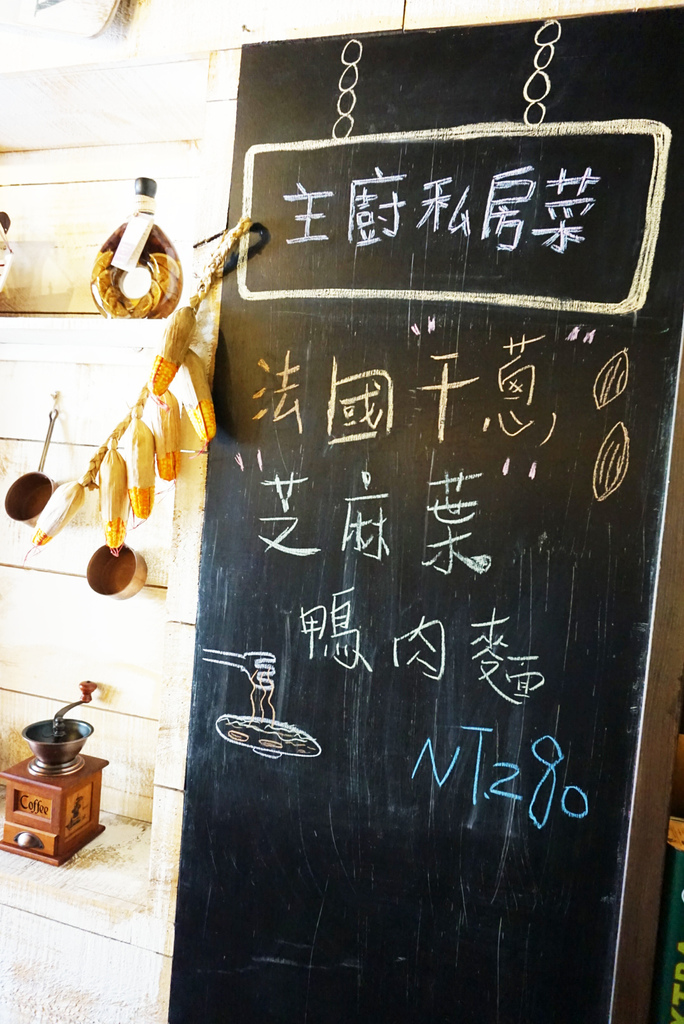 主廚私房菜
法國"干蔥"
"芝麻葉"
鴨肉麵
NT.280
Coffee
XTRA